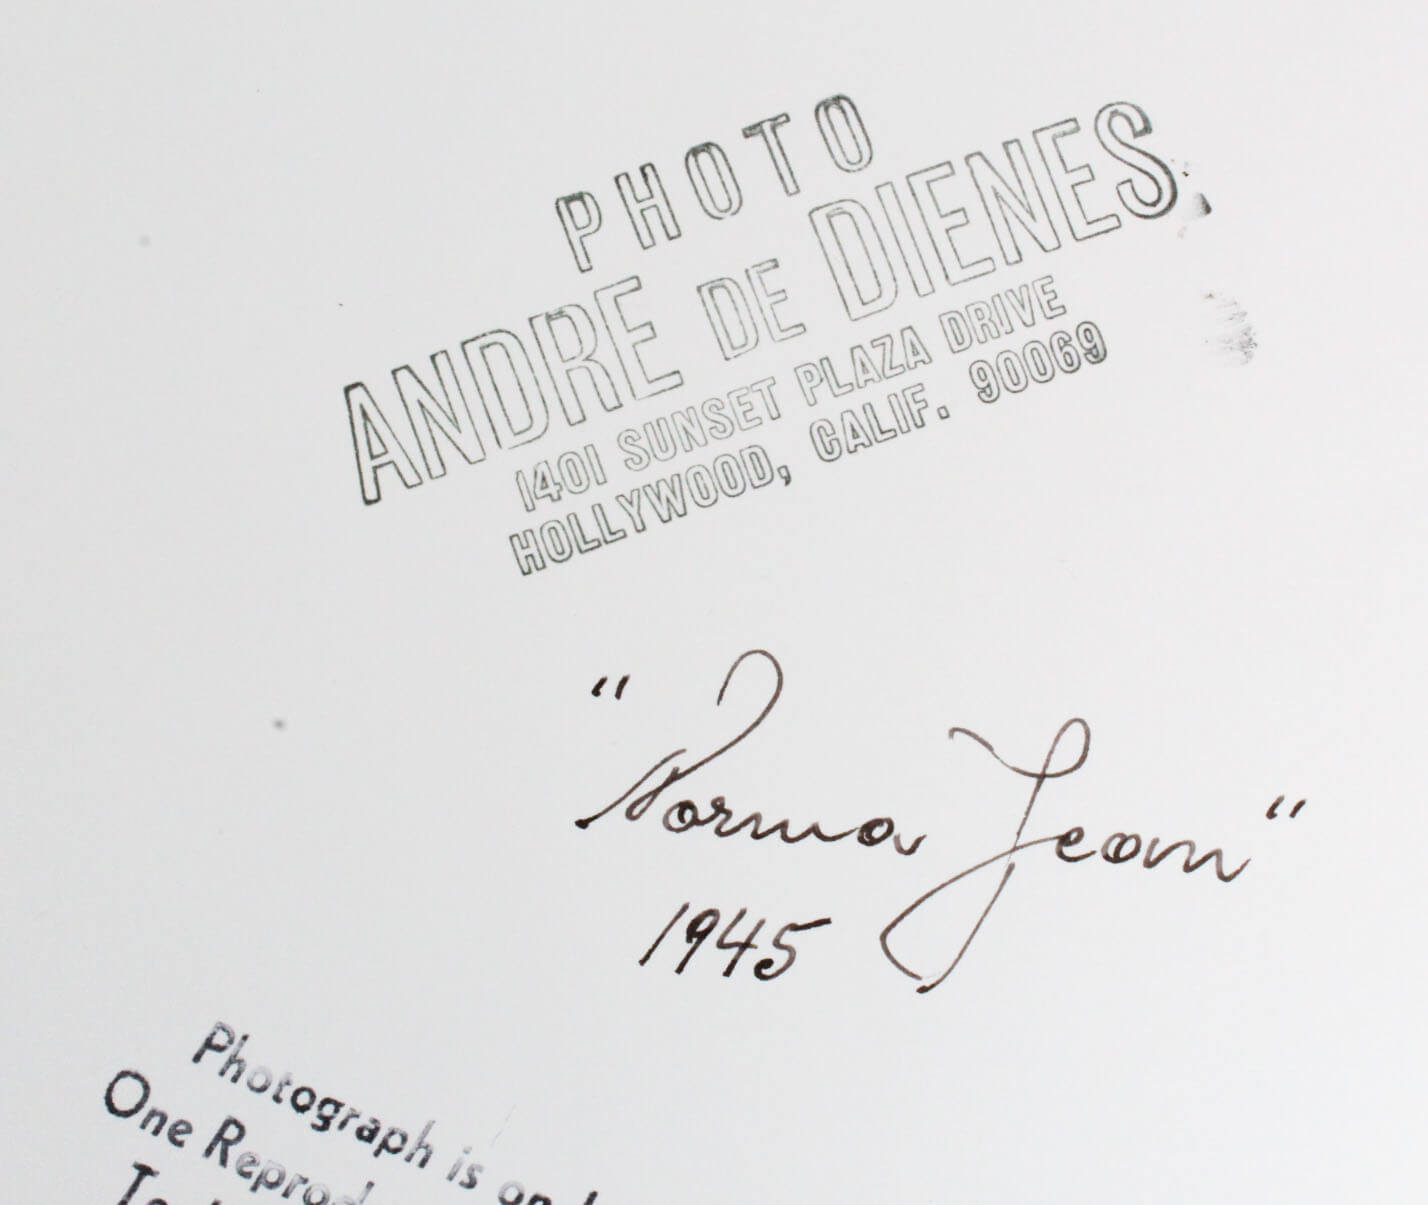 PHOTO
ANDRE DE DIENES
1401 SUNSET PLAZA DRIVE
HOLLYWOOD, CALIF. 90069
"Norma Jean"
1945
Photograph is on
One Reprod